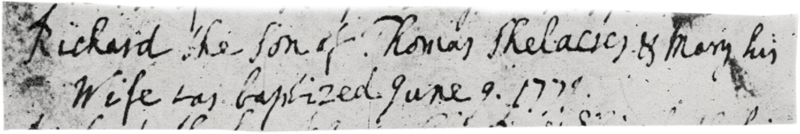 Richard the Son of Thomas & Mary his
Wife was baptized June 9. 177